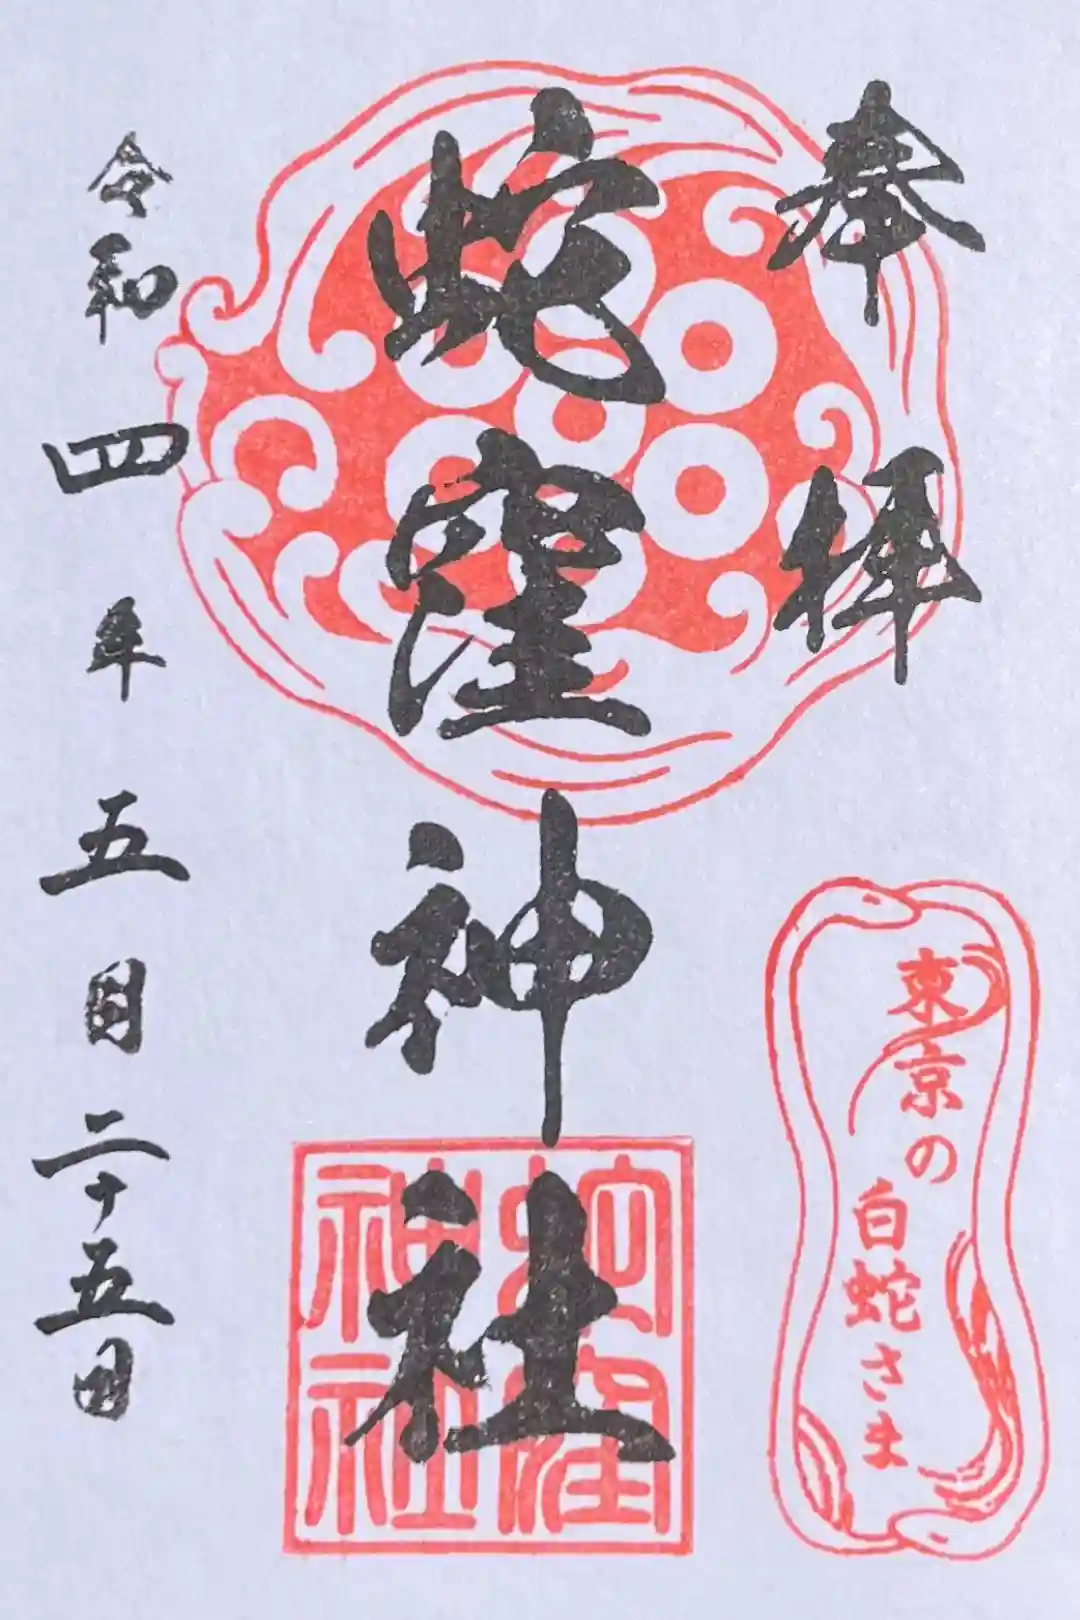 奉拝
蛇窪神社
蛇窪神社
東京の
白蛇さま
令和四年五月二十五日